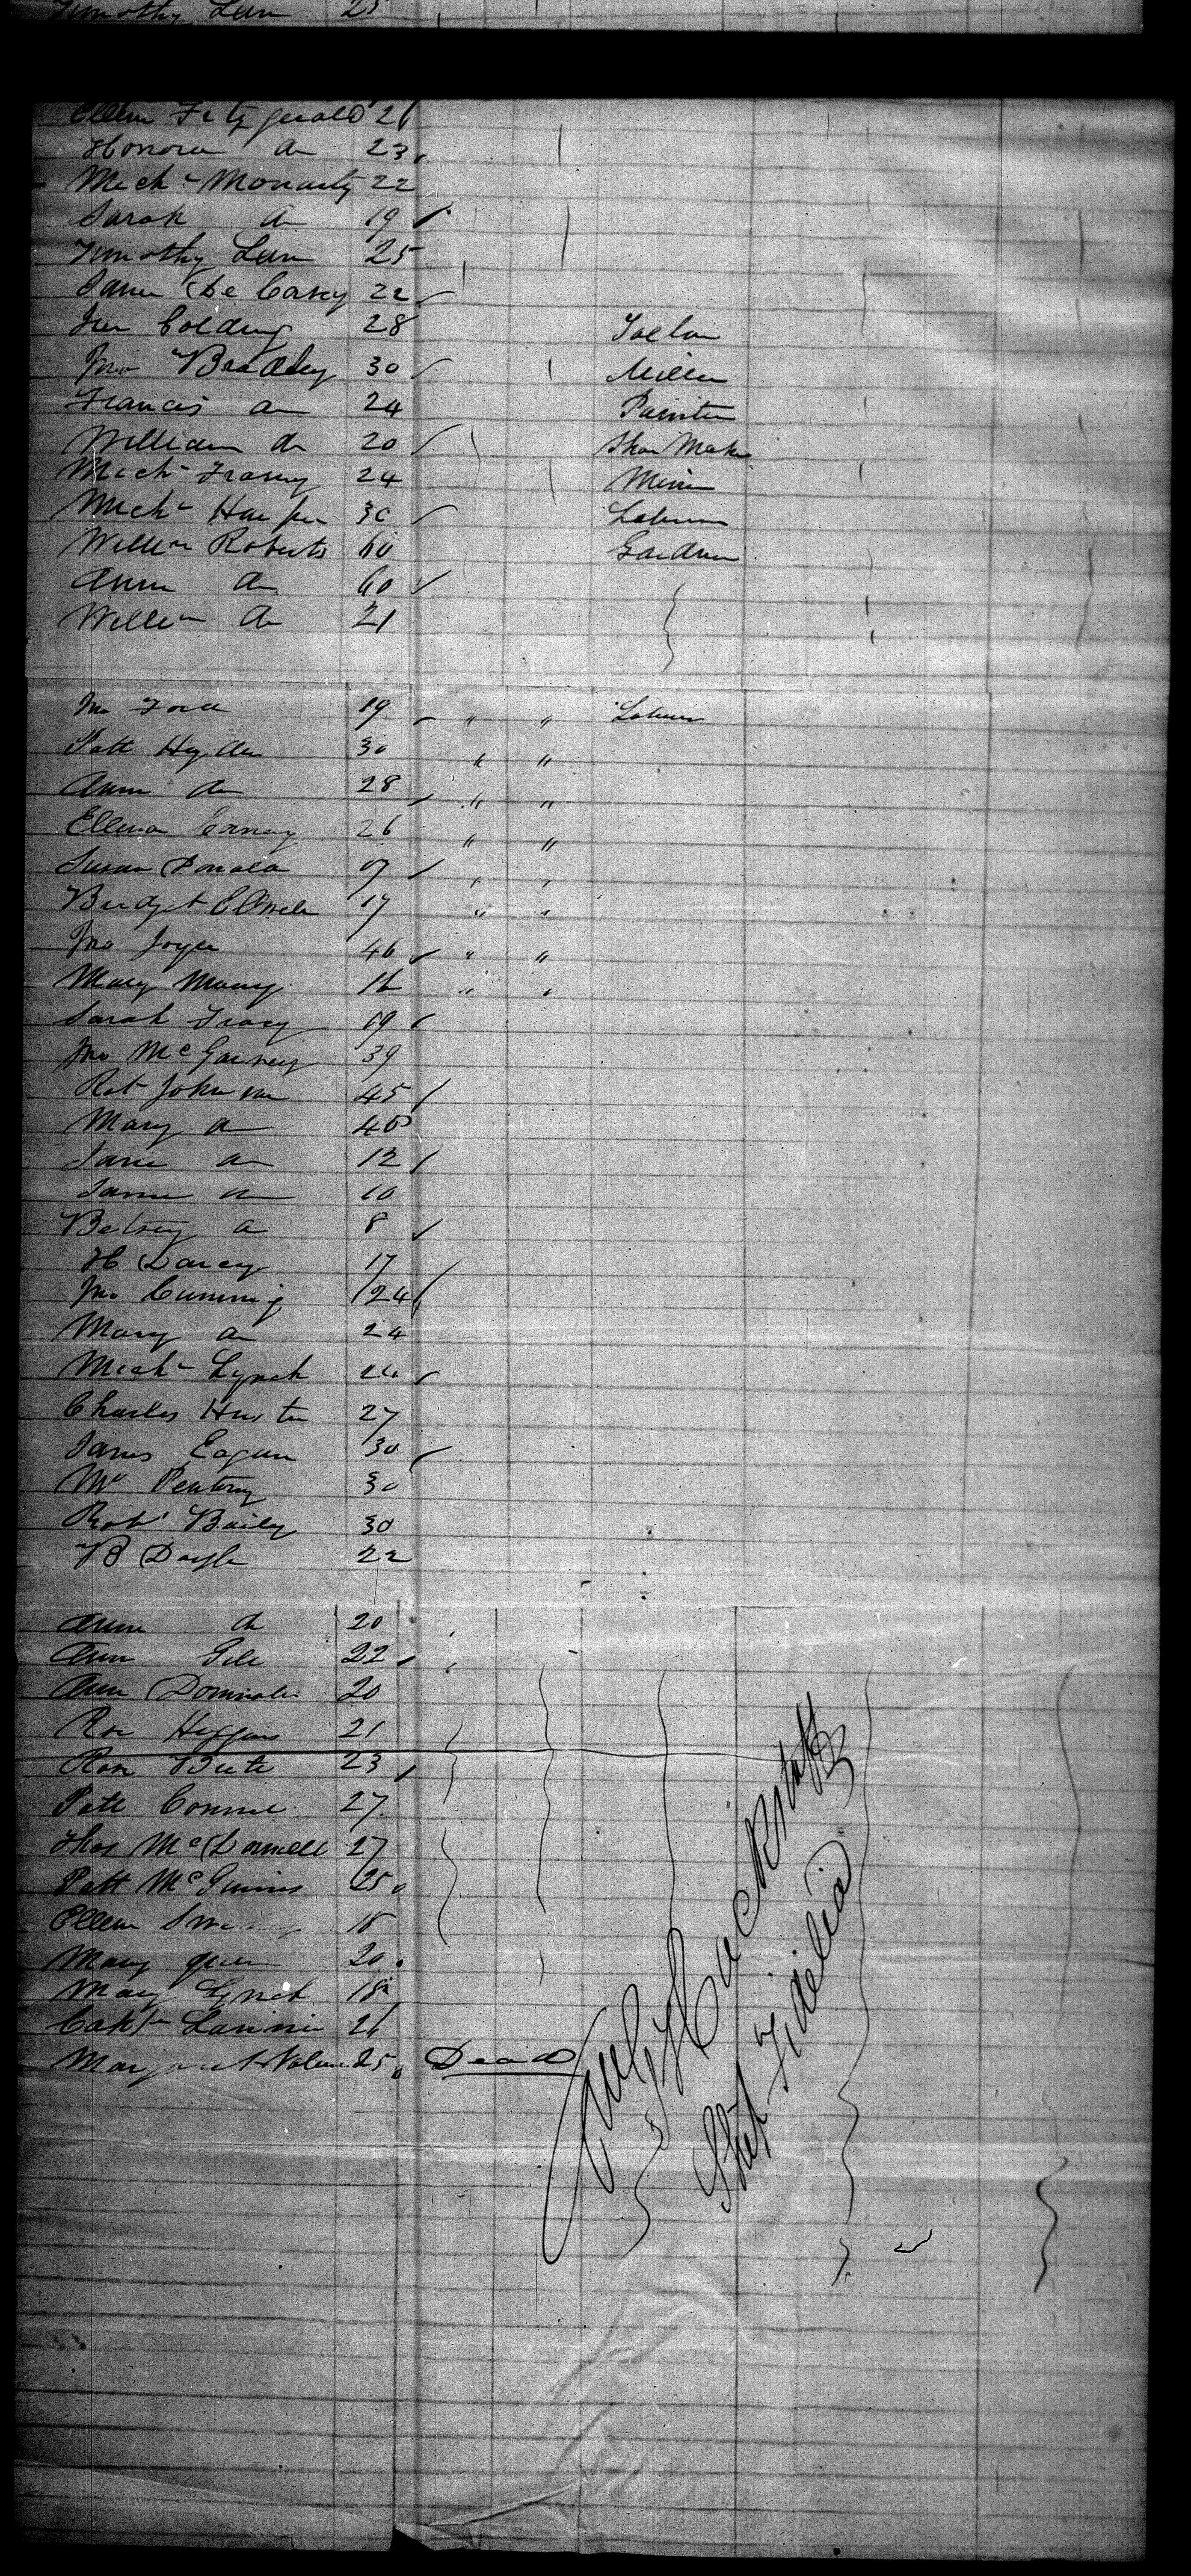 Timothy Lun 25
Ellen Fitzgerald 26
Honora do 23
Mich. Moriarty 22
Sarah do 19
Timothy Lun 25
James De Corsey 22
Golding 28
Jno Bradley 30 Miller
Francis do 24 Painter
William do 20 Shoe Maker
Mich. 24
Mich. Harper 30 Laborer
Willm Roberts 60 Gardner
Anne do 60
Willm do 21
Jno Ford 19 " " Laborer
Patt Hyden 30 " "
Anne do 28 " "
Ellena 26 " "
Susan 19 " "
Bridget 17 " "
Jno Joyce 46 " "
Mary 16 " "
Sarah Tracy 19
Jno McGarvey 39
Rot Johnson 45
Mary do 40
Jane do 12
James do 10
Betsey do 8
H Darcy 17
Jno Cumming 24
Mary do 24
Mich. Lynch 24
Charles Huston 27
James Eagan 30
Wm Pentony 30
Robt Baily 30
B Doyle 22
Anne do 20
Ann Gill 22
Ann 20
Rose Higgins 21
Rose 23
Patt 27
Thos McDonnell 27
Patt McGinnis 25
Ellen 18
Mary Green 20
Mary Lynch 18
26
Margaret Nolan 25 Dead
Ship Fidelia